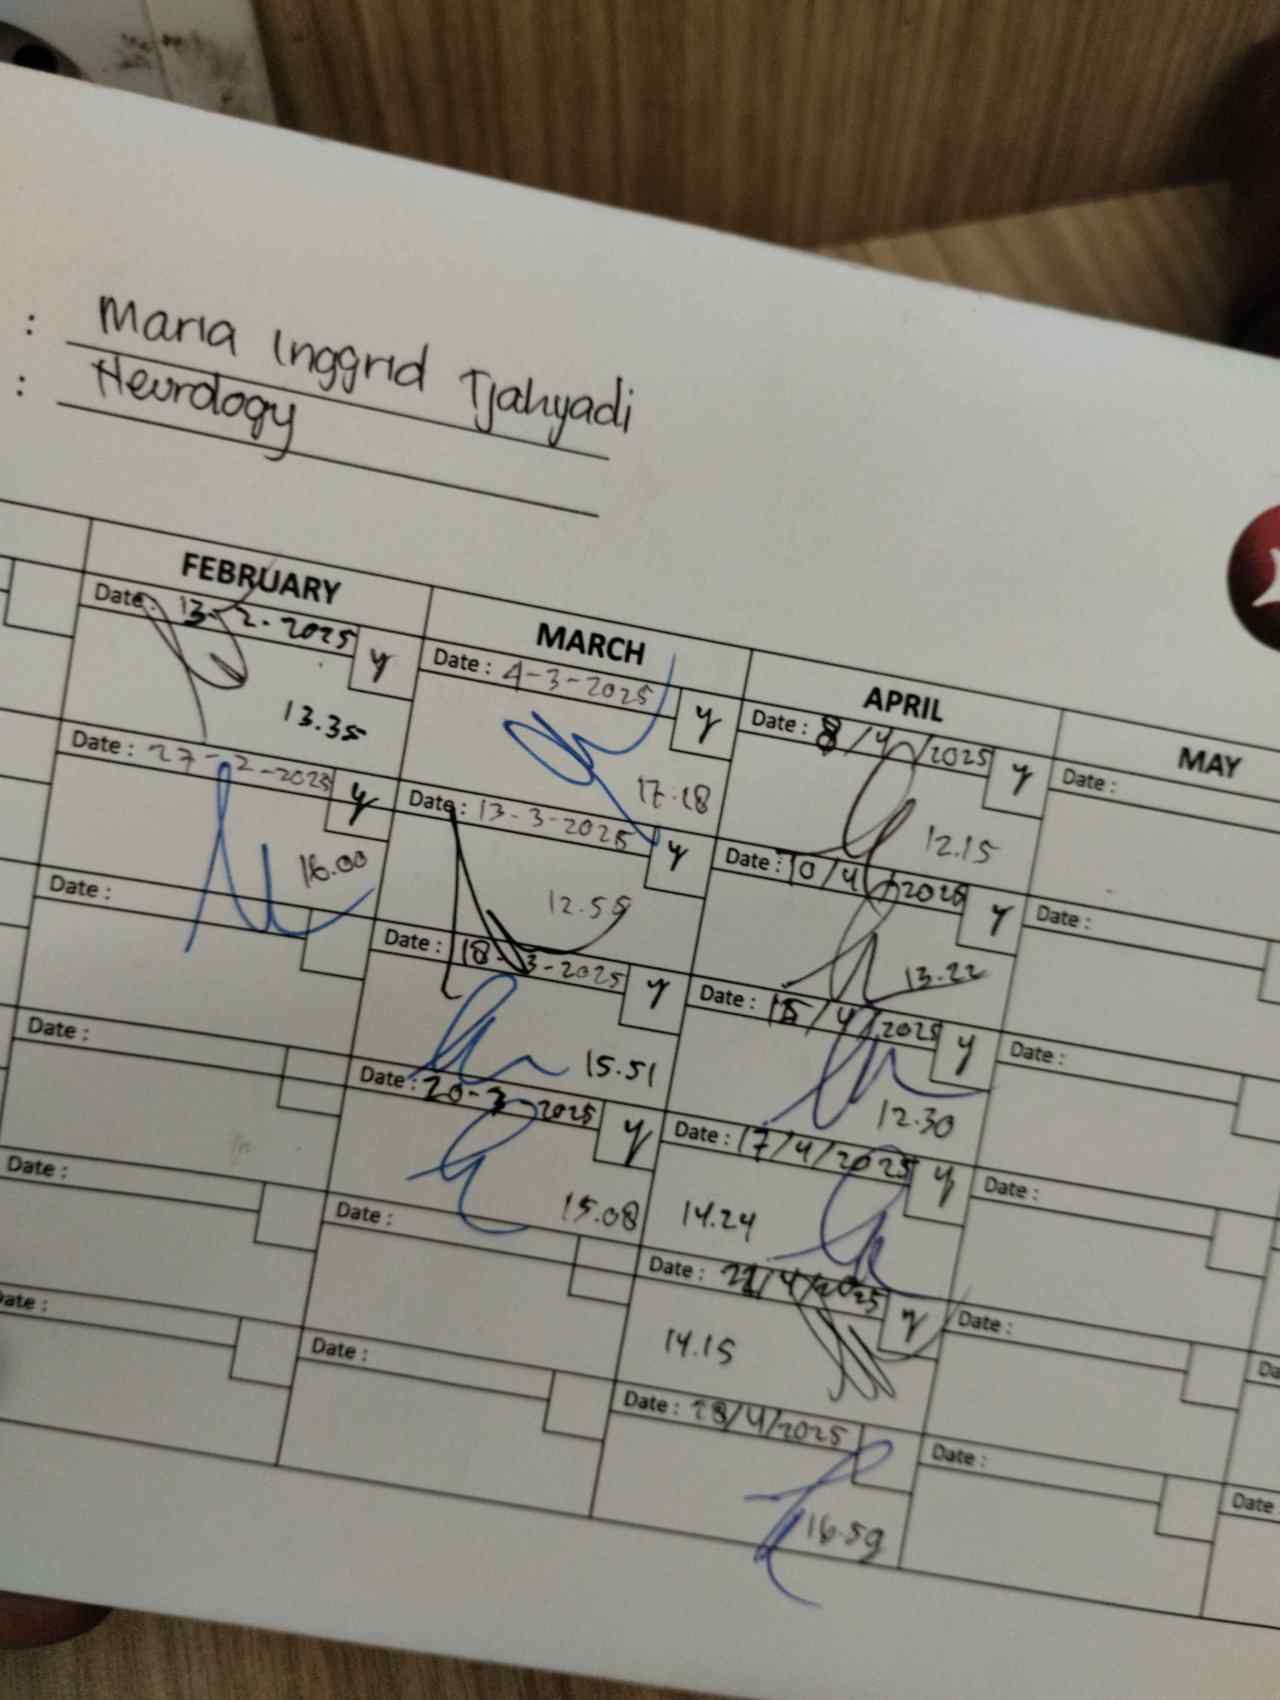 : Maria Inggrid Tjahyadi
: Neurology
FEBRUARY
Date : 13-2-2025 y
13.35
Date : 27-2-2025 y
16.00
Date :
Date :
Date :
Date :
MARCH
Date : 4-3-2025 y
17.18
Date : 13-3-2025 y
12.55
Date : 18-3-2025 y
15.51
Date : 20-3-2025 y
15.08
Date :
Date :
APRIL
Date : 8/4/2025 y
12.15
Date : 10/4/2025 y
13.22
Date : 15/4/2025 y
12.30
Date : 17/4/2025 y
14.24
Date : 22/4/2025 y
14.15
Date : 28/4/2025
16.59
MAY
Date :
Date :
Date :
Date :
Date :
Date :
Da
Date